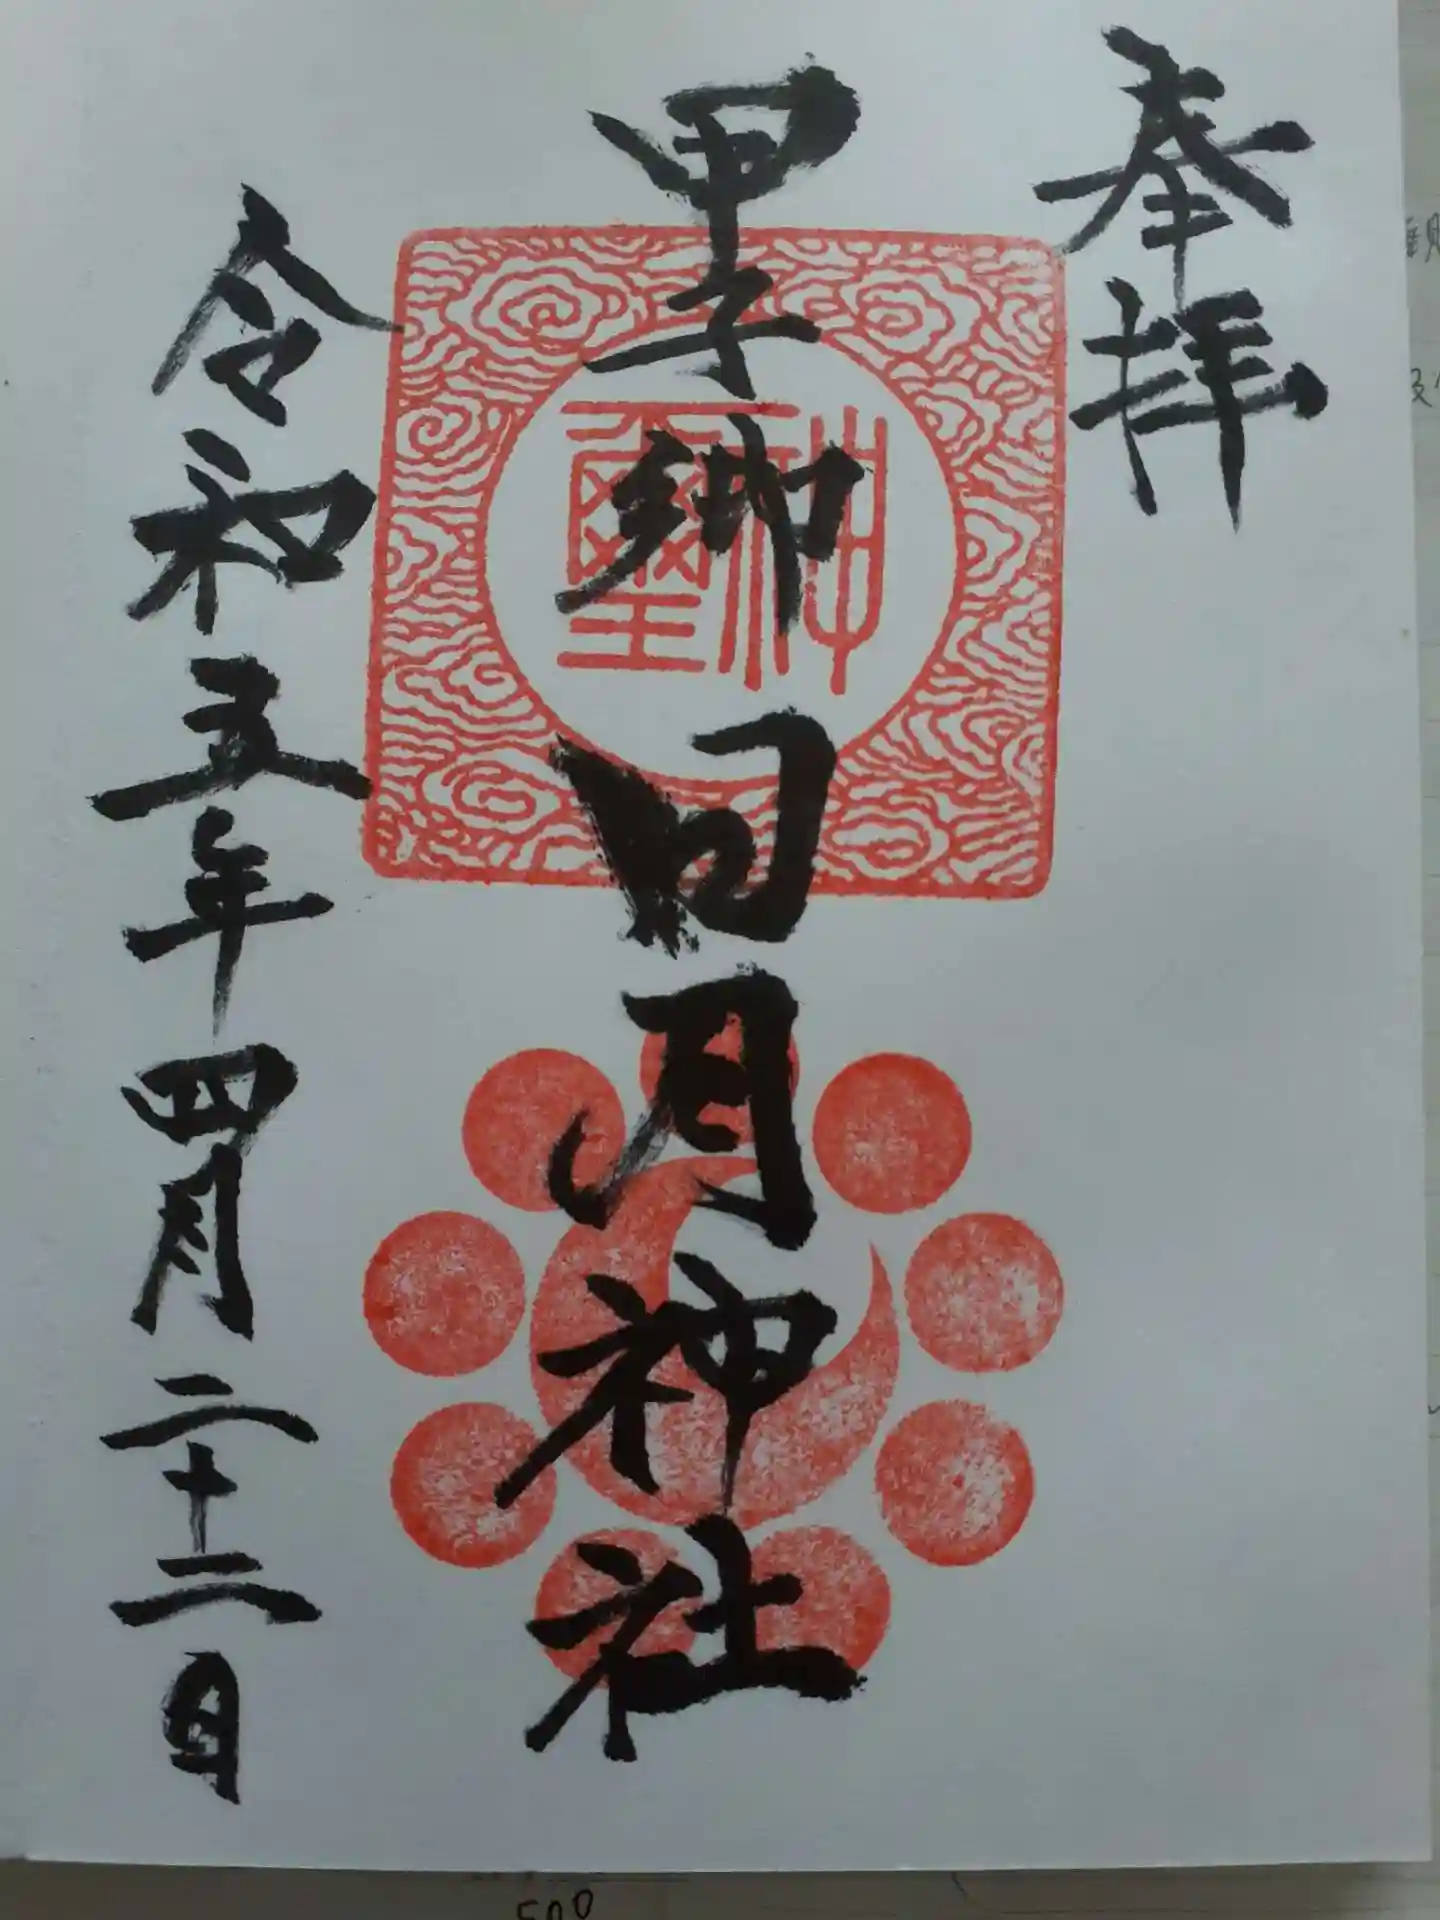 奉拝
甲子郷 日月神社
神璽
令和五年四月二十二日
500